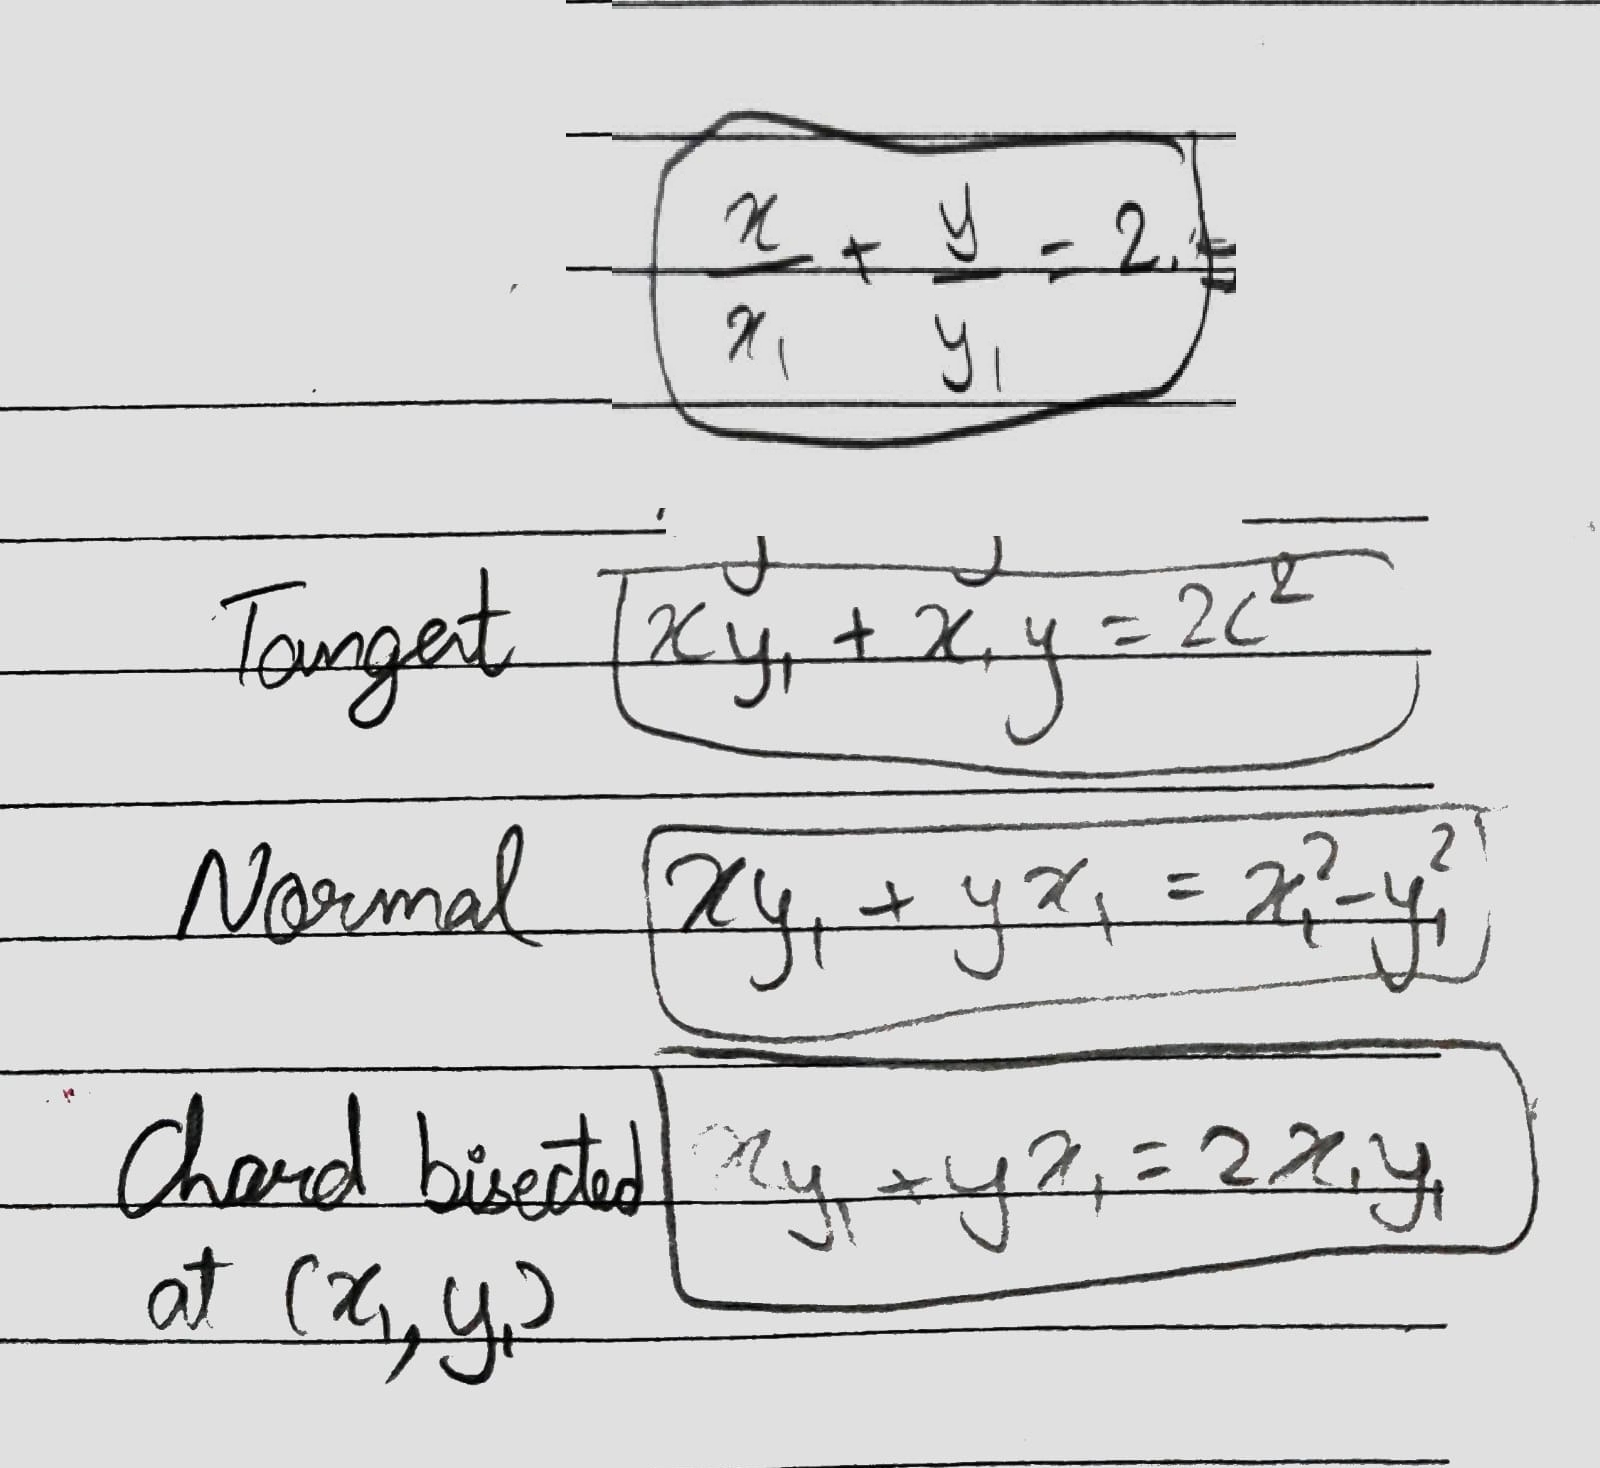 x/x₁ + y/y₁ = 2.
Tangent xy₁ + x₁y = 2c²
Normal xy₁ + yx₁ = x₁² - y₁²
Chord bisected xy₁ + yx₁ = 2x₁y₁
at (x₁, y₁)